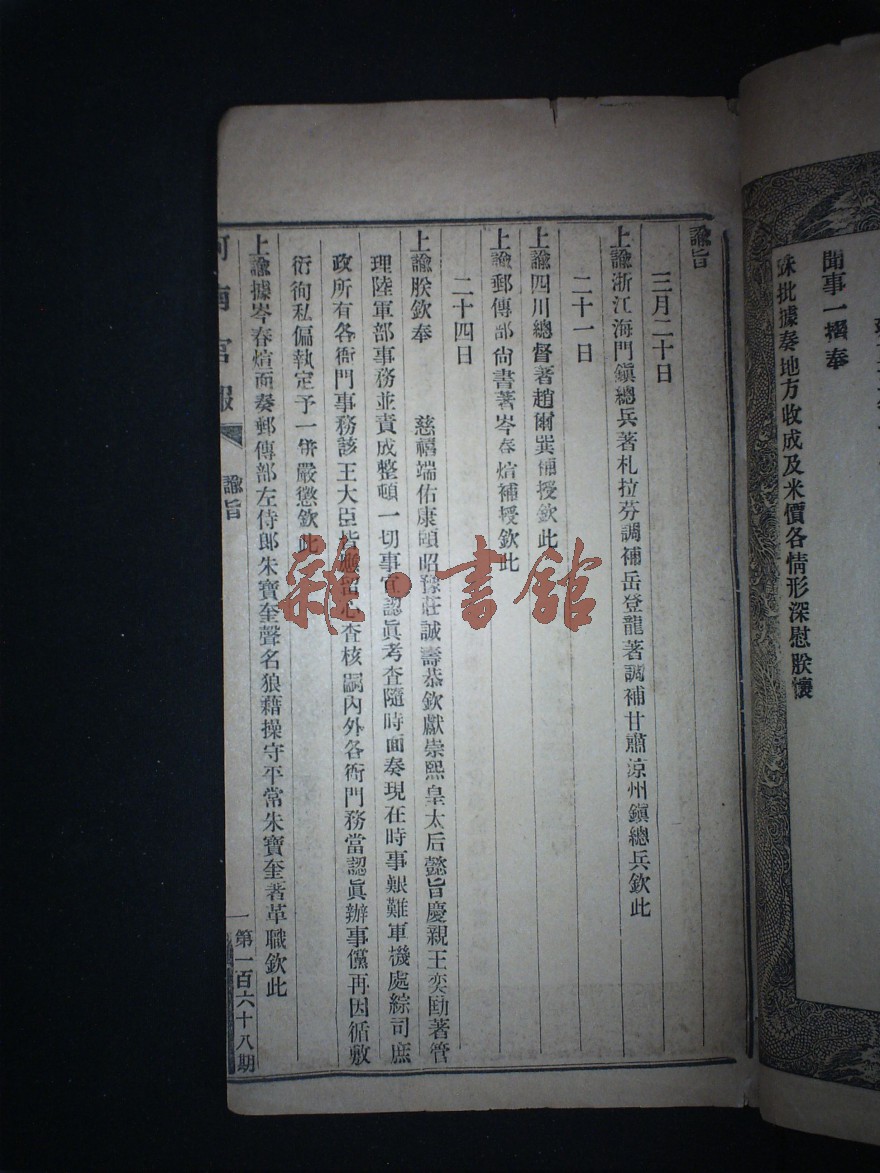 聞事一摺奉
硃批據奏地方收成及米價各情形深慰朕懷
諭旨
三月二十日
上諭浙江海門鎮總兵著札拉芬調補岳登龍著調補甘肅涼州鎮總兵欽此
二十一日
上諭四川總督著趙爾巽補授欽此
上諭郵傳部尚書著岑春煊補授欽此
二十四日
上諭朕欽奉 慈禧端佑康頤昭豫莊誠壽恭欽獻崇熙皇太后懿旨慶親王奕劻著管
理陸軍部事務並責成整頓一切事宜認眞考查隨時面奏現在時事艱難軍機處綜司庶
政所有各衙門事務該王大臣皆應留心查核嗣內外各衙門務當認眞辦事儻再因循敷
衍徇私偏執定予一併嚴懲欽此
上諭據岑春煊面奏郵傳部左侍郎朱寶奎聲名狼藉操守平常朱寶奎著革職欽此
河南官報
諭旨
一
第一百六十八期
雜·書館